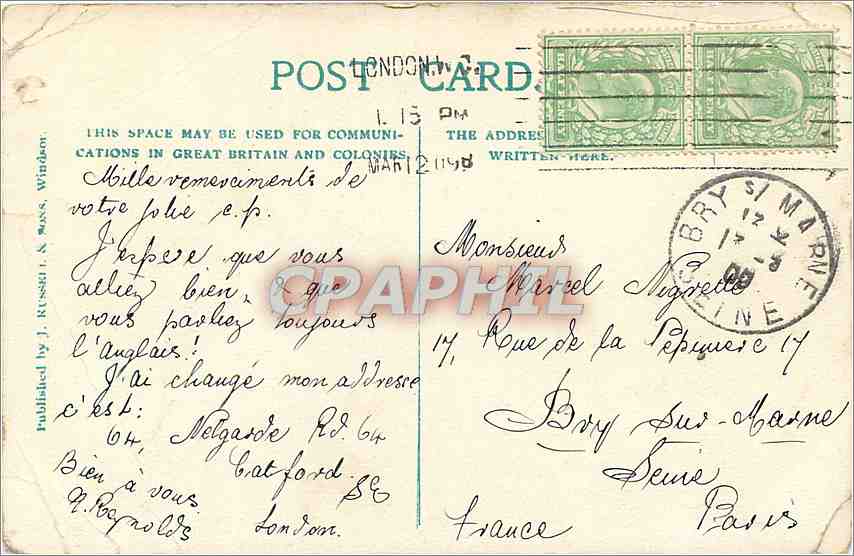 POST CARD.
LONDON. W.C.
1. 15 PM
MAR 12 09
THIS SPACE MAY BE USED FOR COMMUNI-
CATIONS IN GREAT BRITAIN AND COLONIES
THE ADDRES
WRITTEN HERE.
Published by J. RUSSELL & SONS, Windsor.
Mille remerciments de
votre jolie c.p.
J'espere que vous
alliez bien, & que
vous parliez toujours
l'Anglais!
J'ai changé mon addresse
c'est:
64, Nelgarde Rd. 64
Catford. SE
London.
Bien à vous
Reynolds
BRY S/ MARNE
SEINE
Monsieur
Marcel Nigrette
17, Rue de la Pepiniere 17
Bry sur-Marne
Seine
Paris
France
CPAPHIL